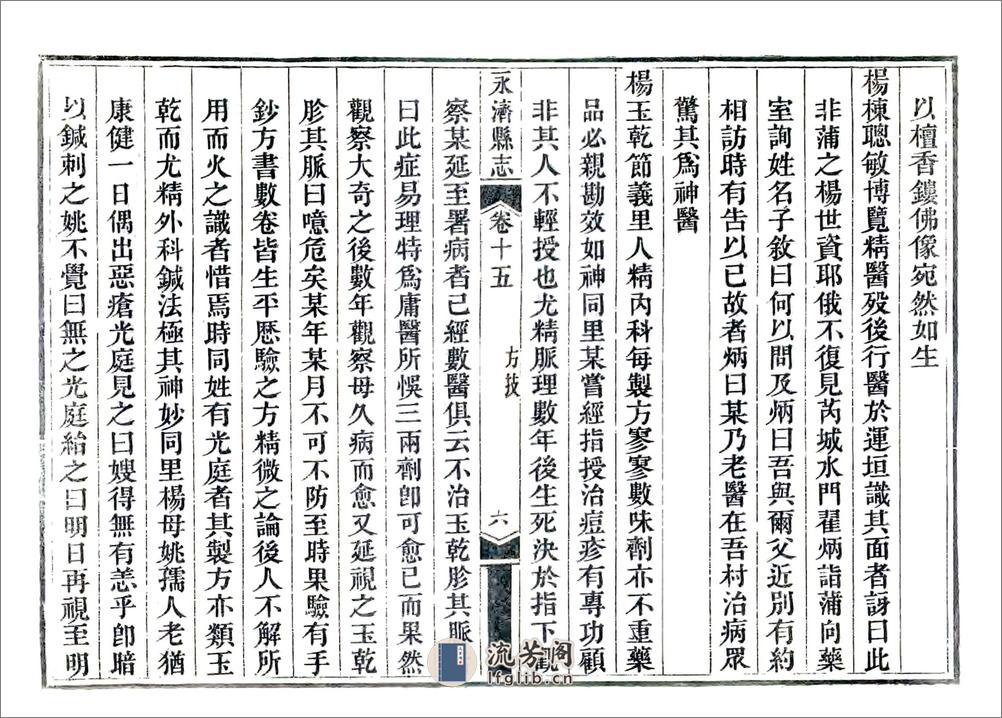 以檀香鏤佛像宛然如生
楊棟聰敏博覽精醫歿後行醫於運垣識其面者訝曰此
非蒲之楊世資耶俄不復見芮城水門翟炳詣蒲向藥
室詢姓名子敘曰何以問及炳曰吾與爾父近別有約
相訪時有告以已故者炳曰某乃老醫在吾村治病眾
驚其爲神醫
楊玉乾節義里人精內科每製方寥寥數味劑亦不重藥
品必親勘效如神同里某嘗經指授治痘疹有專功顧
非其人不輕授也尤精脈理數年後生死決於指下觀
永濟縣志
卷十五
方技
六
察某延至署病者已經數醫俱云不治玉乾胗其脈
曰此症易理特爲庸醫所悞三兩劑卽可愈已而果然
觀察大奇之後數年觀察母久病而愈又延視之玉乾
胗其脈曰噫危矣某年某月不可不防至時果驗有手
鈔方書數卷皆生平歷驗之方精微之論後人不解所
用而火之識者惜焉時同姓有光庭者其製方亦類玉
乾而尤精外科鍼法極其神妙同里楊母姚孺人老猶
康健一日偶出惡瘡光庭見之曰嫂得無有恙乎卽暗
以鍼刺之姚不覺曰無之光庭紿之曰明日再視至明
流芳阁
lfglib.cn